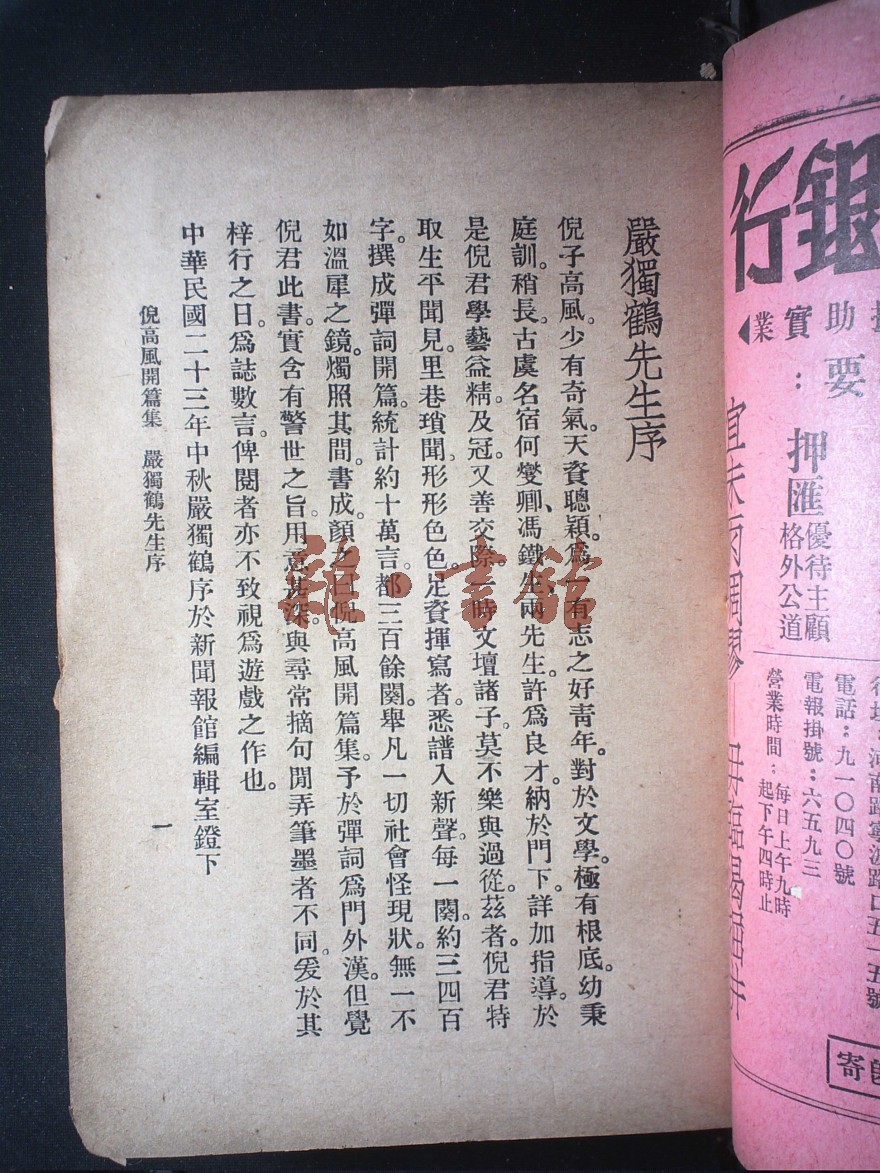 嚴獨鶴先生序
倪子高風。少有奇氣。天資聰穎。爲一有志之好靑年。對於文學。極有根底。幼秉
庭訓。稍長。古虞名宿何燮卿、馮鐵生、兩先生。許爲良才。納於門下。詳加指導。於
是倪君學藝益精。及冠。又善交際。一時文壇諸子。莫不樂與過從。茲者。倪君特
取生平聞見。里巷瑣聞、形形色色。足資揮寫者。悉譜入新聲。每一闋。約三四百
字。撰成彈詞開篇。統計約十萬言。都三百餘闋。舉凡一切社會怪現狀。無一不
如溫犀之鏡。燭照其間。書成。顏之曰倪高風開篇集。予於彈詞爲門外漢。但覺
倪君此書。實含有警世之旨。用意甚深。與尋常摘句閒弄筆墨者不同。爰於其
梓行之日。爲誌數言。俾閱者亦不致視爲遊戲之作也。
中華民國二十三年中秋嚴獨鶴序於新聞報館編輯室鐙下
倪高風開篇集 嚴獨鶴先生序
一
雜·書館
銀行
助實業
要：
押匯
優待主顧
格外公道
宜未雨綢繆
毋臨渴掘井
河南路寧波路口五一五號
電話：九一〇四〇號
電報掛號：六五九三
營業時間：每日上午九時起下午四時止
寄